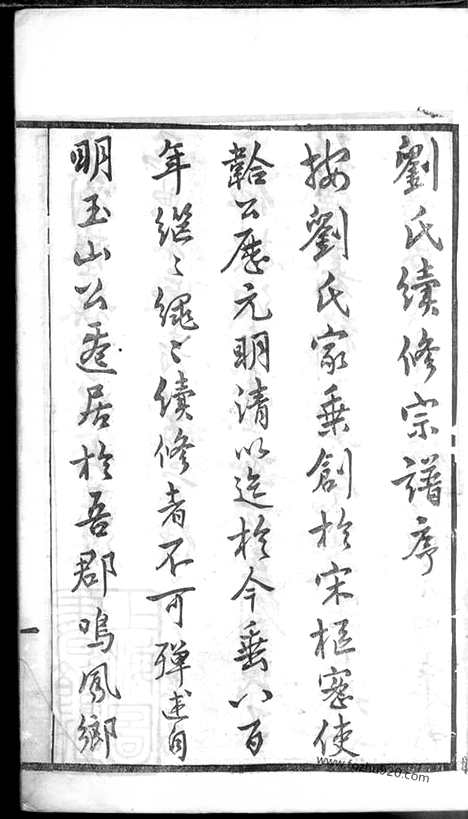 劉氏續修宗譜序
按劉氏家乘創於宋樞密使
韐公歷元明清以迄於今垂八百
年繼々繩々續修者不可殫述自
明玉山公遷居於吾郡鳴鳳鄉
一
www.fozhu920.com